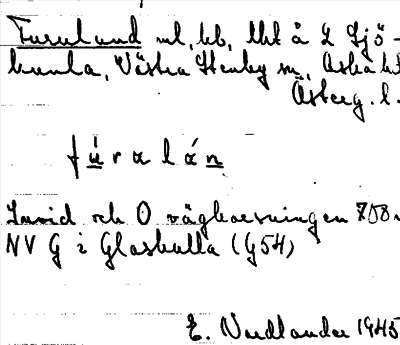 Furulund ml, bb, lht å L Sjö-
kumla, Västra Stenby sn, Aska hd
Österg. l.
f u̲ r a l á n̲
Invid och O vägkorsningen 708
NV G i Glaskulla (G54)
E. Nordlander 1945